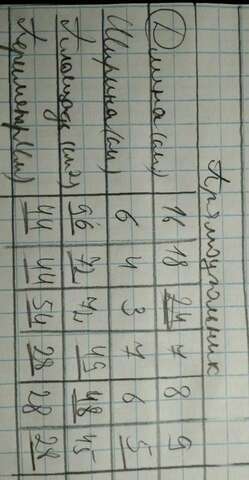 Прямоугольник
Длина (см) 16 18 24 7 8 9
Ширина (см) 6 4 3 7 6 5
Площадь (см²) 96 72 72 49 48 45
Периметр (см) 44 44 54 28 28 28